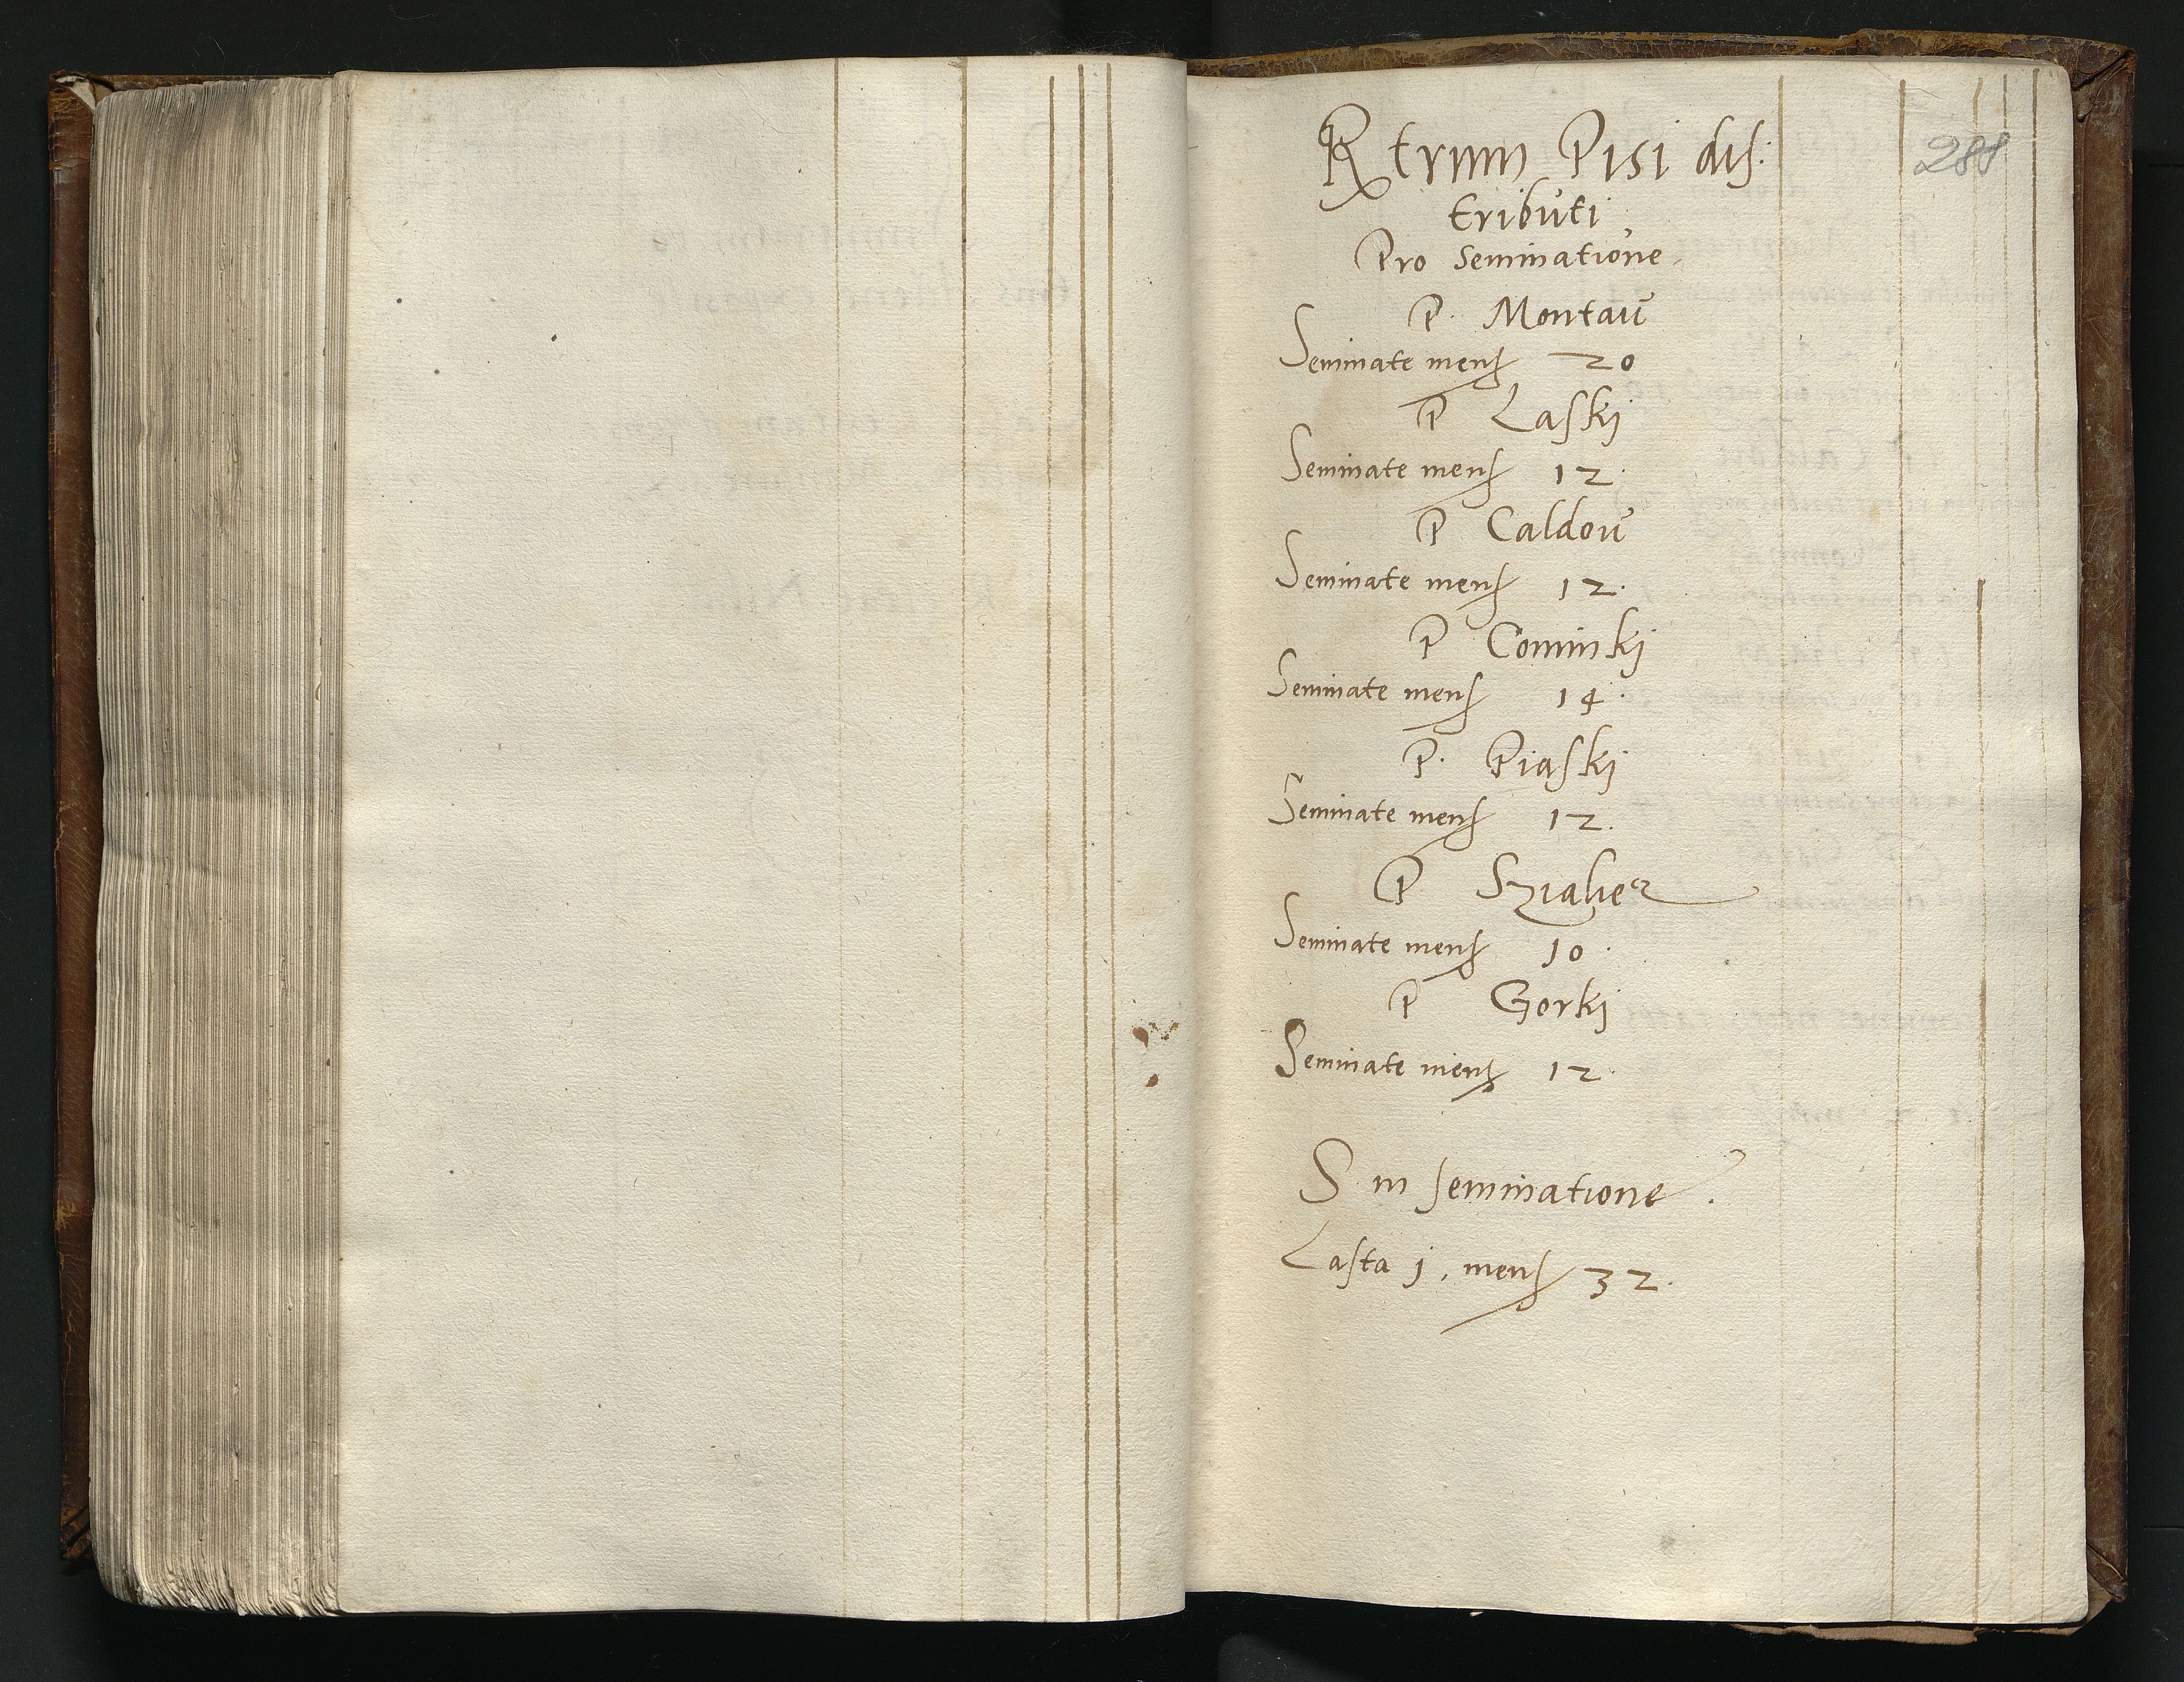 288
Rtrum Pisi dis:
tributi
Pro Seminatione.
P. Montaŭ
Seminate mens 20
P Laski
Seminate mens 12.
P Caldoŭ
Seminate mens 12.
P Cominkj
Seminate mens 14.
P. Piaskj
Seminate mens 12.
P
Seminate mens 10.
P Gorkj
Seminate mens 12
S in seminatione.
Lasta j. mens 32.